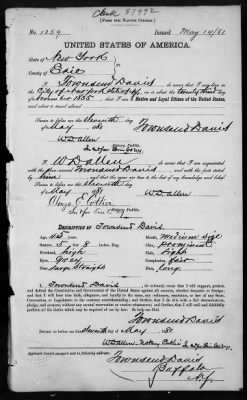 Check 87972
[FORM FOR NATIVE CITIZEN.]
No. 1259 Issued May 14/81
UNITED STATES OF AMERICA.
STATE OF New York
COUNTY OF Erie
I, Townsend Davis, do swear that I was born
in City of on or about the day
of November 1835; that I am a Native and Loyal Citizen of the United States,
and about to travel abroad.
Sworn to before me, this Eleventh day
of May 1881 Townsend Davis
W D Allen
Notary Public.
I, W D Allen, do swear that I am acquainted
with the above named Townsend Davis, and with the facts
stated by him, and that the same are true to the best of my knowledge and belief.
Sworn to before me, this Eleventh day
of May 1881 W D Allen
Notary Public.
DESCRIPTION OF Townsend Davis.
Age: 45 Mouth: Medium size
Stature: 5 feet 8 inches, Eng. Chin: prominent
Forehead: high Complexion: light
Eyes: Grey Hair: fair
Nose: large Straight Face: long
I, Townsend Davis, do solemnly swear that I will support, protect, and
defend the Constitution and Government of the United States against all enemies, whether domestic
or foreign; and that I will bear true faith, allegiance, and loyalty to the same, any ordinance, resolution, or law of any State,
Convention, or Legislature to the contrary notwithstanding; and further, that I do this with a full determination,
pledge, and purpose, without any mental reservation or evasion whatsoever; and further, that I will well and
faithfully perform all the duties which may be required of me by law: So help me God.
Townsend Davis
Sworn to before me, this Eleventh day of May 1881
W D Allen Notary Public
Applicant desires passport to be sent to following address:
Townsend Davis
Buffalo
N.Y.